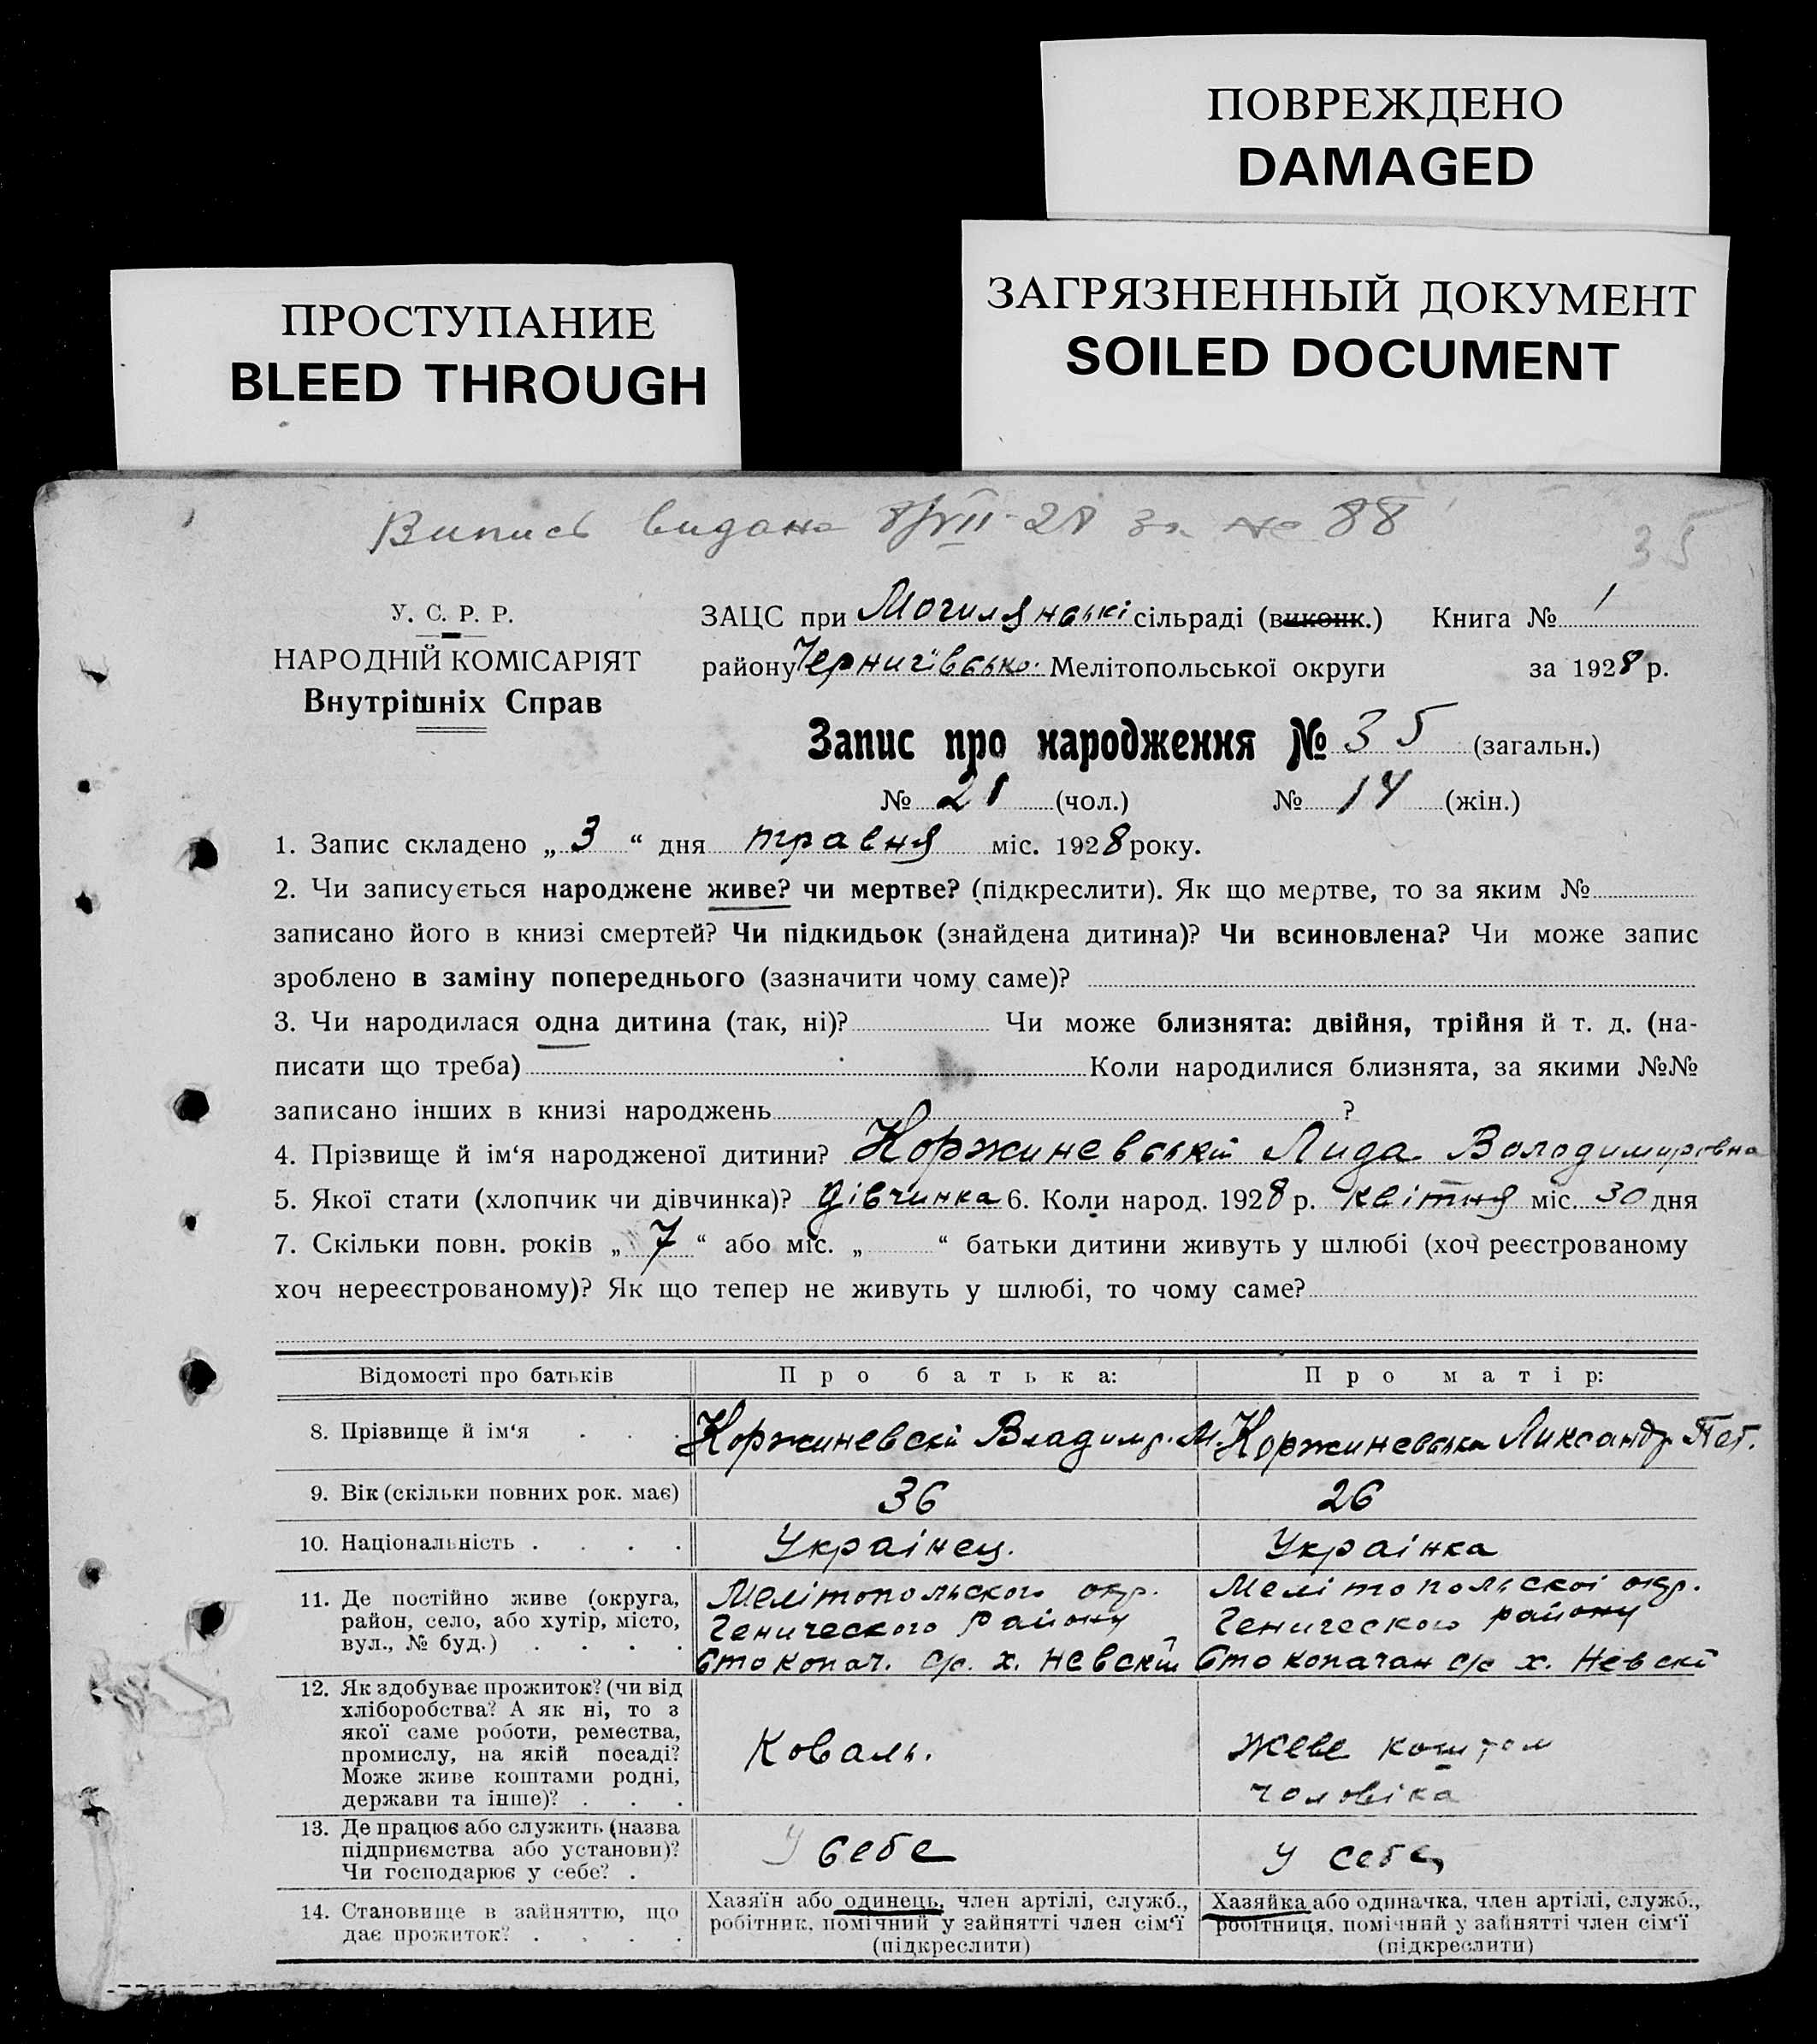 ПОВРЕЖДЕНО
DAMAGED
ЗАГРЯЗНЕННЫЙ ДОКУМЕНТ
SOILED DOCUMENT
ПРОСТУПАНИЕ
BLEED THROUGH
Випись видана 8/VII-28 за № 88
35
У. С. Р. Р.
НАРОДНІЙ КОМІСАРІЯТ
Внутрішніх Справ
ЗАЦС при сільраді (виконк.) Книга № 1
району Мелітопольської округи за 1928 р.
Запис про народження № 35 (загальн.)
№ 21 (чол.) № 14 (жін.)
1. Запис складено „ 3 “ дня травня міс. 1928 року.
2. Чи записується народжене живе? чи мертве? (підкреслити). Як що мертве, то за яким №
записано його в книзі смертей? Чи підкидьок (знайдена дитина)? Чи всиновлена? Чи може запис
зроблено в заміну попереднього (зазначити чому саме)?
3. Чи народилася одна дитина (так, ні)? Чи може близнята: двійня, трійня й т. д. (на-
писати що треба) Коли народилися близнята, за якими №№
записано інших в книзі народжень ?
4. Прізвище й ім‘я народженої дитини? Коржиневській Лида Володимировна
5. Якої стати (хлопчик чи дівчинка)? дівчинка 6. Коли народ. 1928 р. квітня міс. 30 дня
7. Скільки повн. років „ 7 “ або міс. „ “ батьки дитини живуть у шлюбі (хоч реєстрованому
хоч нереєстрованому)? Як що тепер не живуть у шлюбі, то чому саме?
Відомості про батьків Про батька: Про матір:
8. Прізвище й ім‘я . . . Коржиневскій Владимр. М. Коржиневська Ликсандр. Пет.
9. Вік (скільки повних рок. має) 36 26
10. Національність . . . . Украінец. Украінка
11. Де постійно живе (округа,
район, село, або хутір, місто,
вул., № буд.) . . . .
Мелітопольского окр.
Генического Району
Стокопач. с/р. х. Невскій
Мелітопольскоі окр.
Генического району
Стокопачан с/р х. Невскі
12. Як здобуває прожиток? (чи від
хліборобства? А як ні, то з
якої саме роботи, ремества,
промислу, на якій посаді?
Може живе коштами родні,
держави та інше)? . . .
Коваль.
жеве коштом
чоловіка
13. Де працює або служить (назва
підприємства або установи)?
Чи господарює у себе? .
У себе
У себе
14. Становище в зайняттю, що
дає прожиток? . . . .
Хазяїн або одинець, член артілі, служб.,
робітник, помічний у зайнятті член сім‘ї
(підкреслити)
Хазяйка або одиначка, член артілі, служб.,
робітниця, помічний у зайнятті член сім‘ї
(підкреслити)